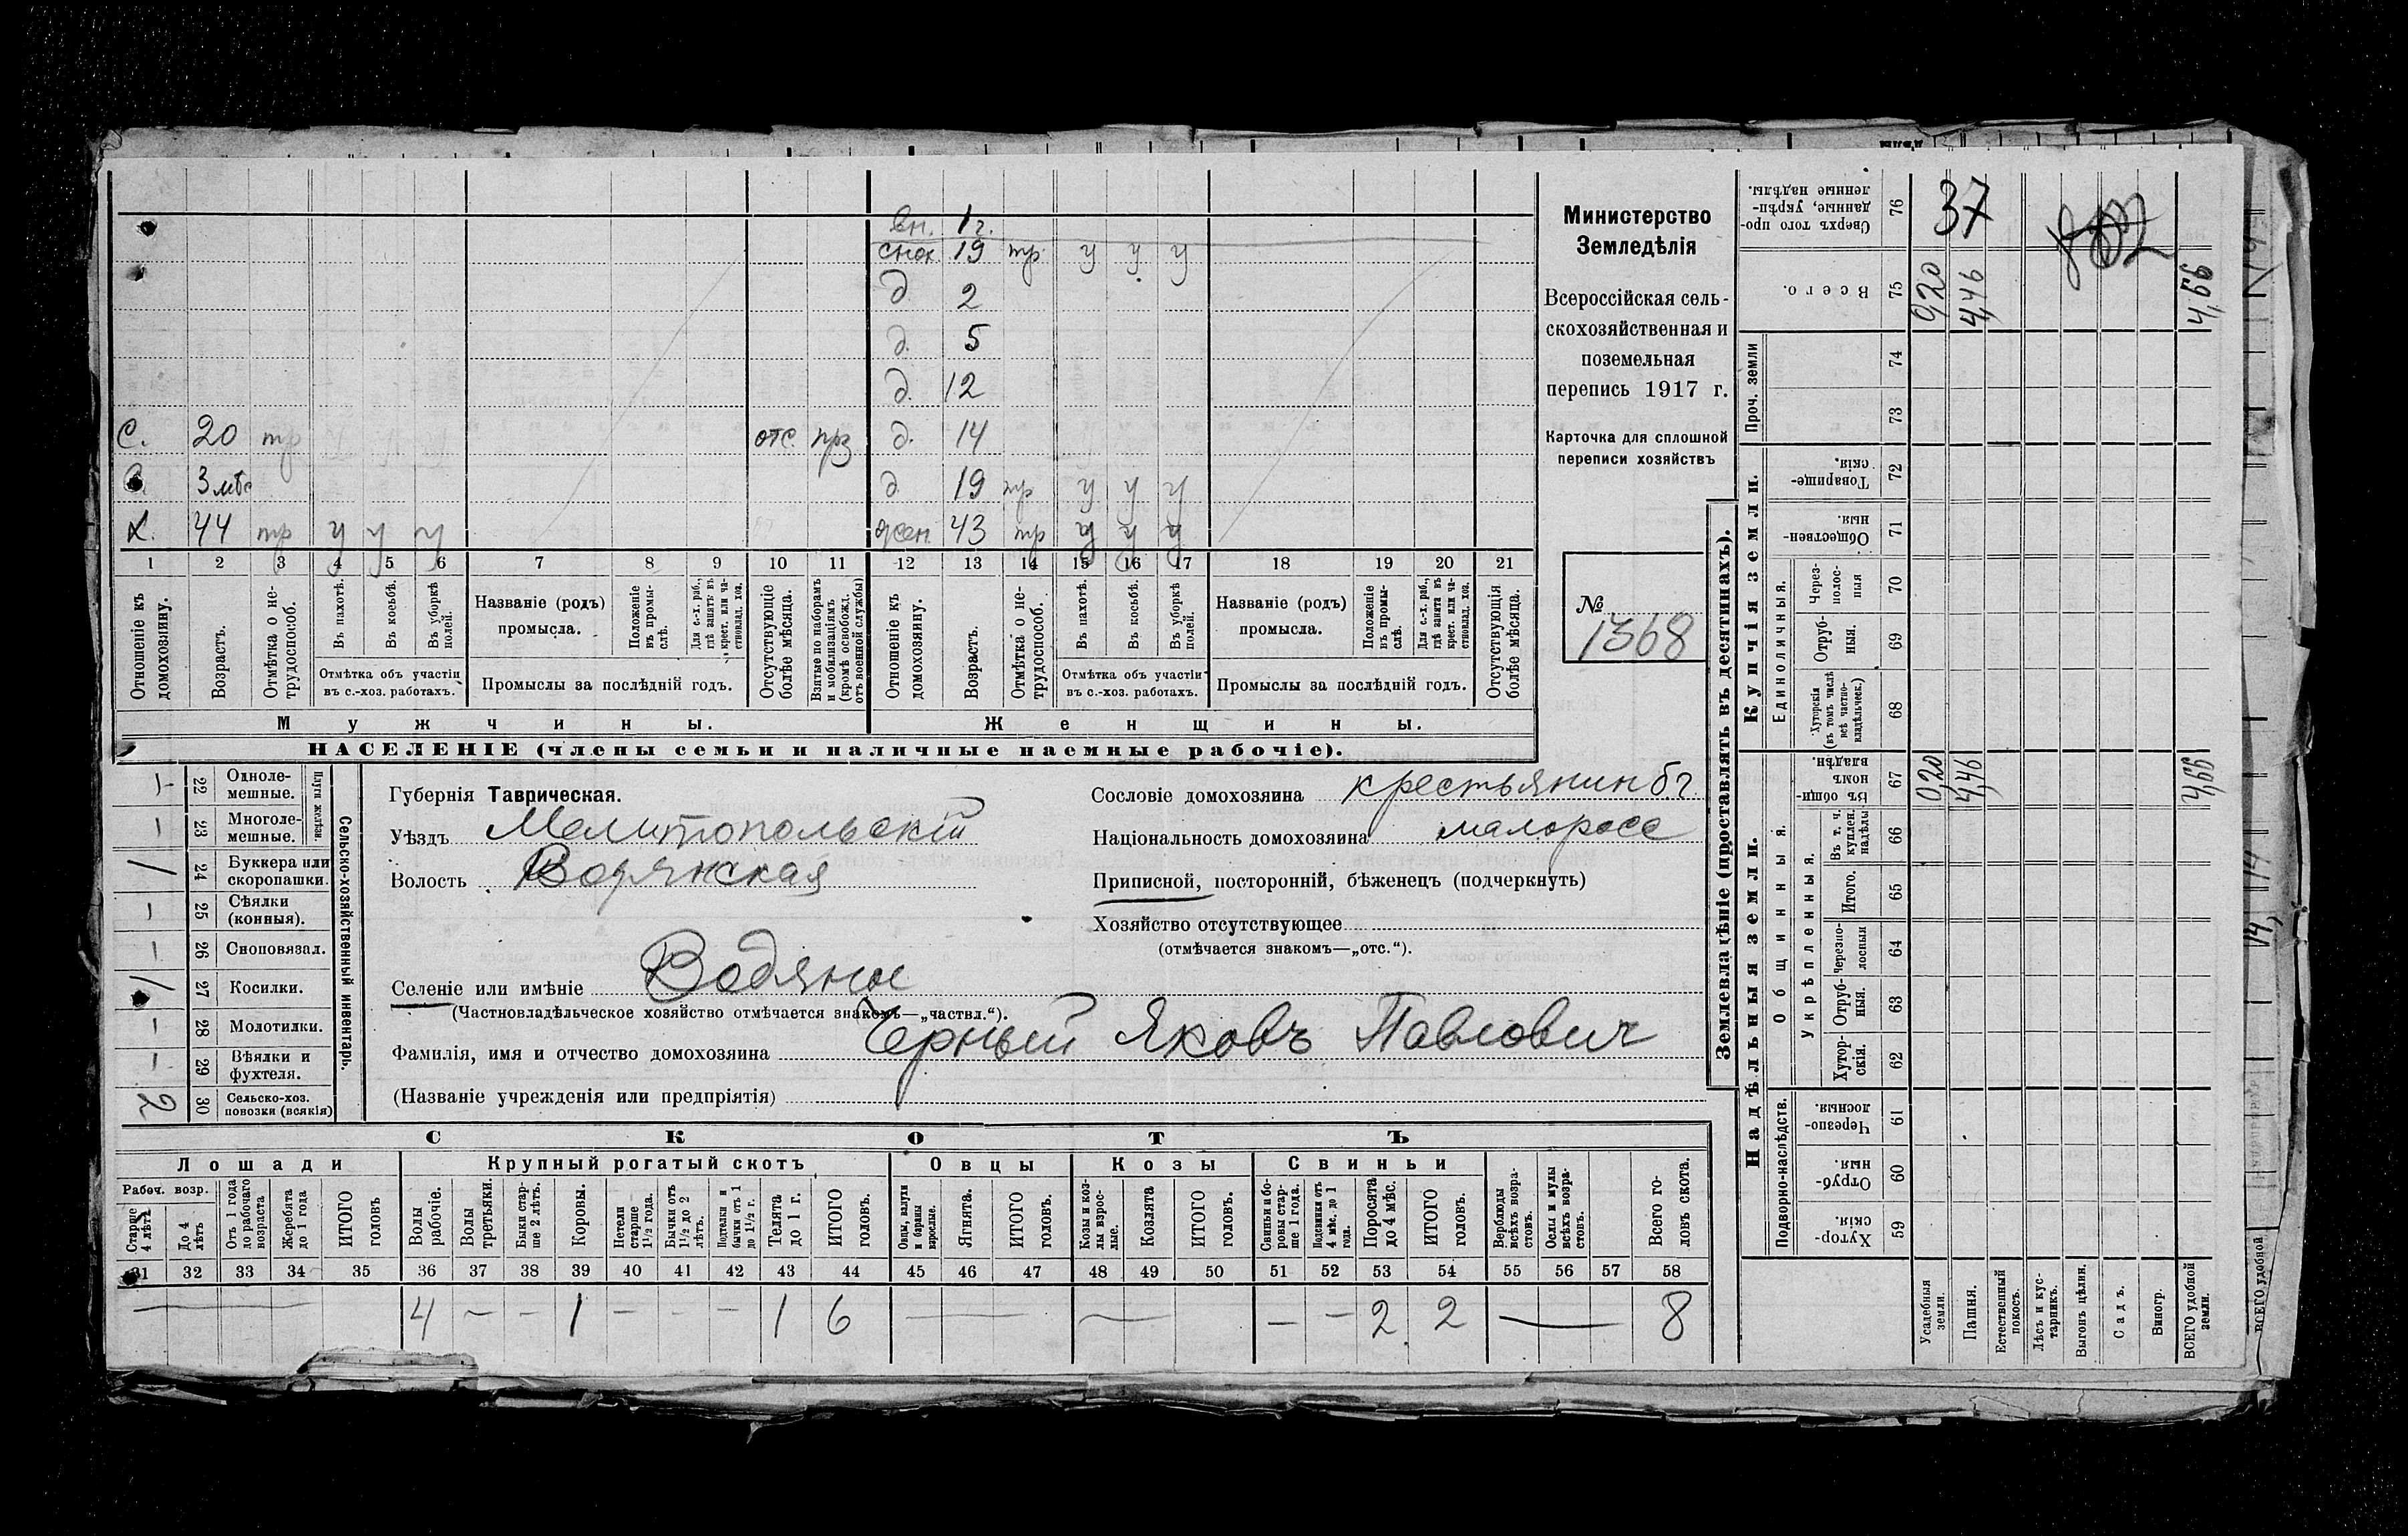 вн. 1 г.
снох. 19 тр. у у у
д. 2
д. 5
д. 12
с. 20 тр отс. прз д. 14
с. 3 мѣс д. 19 тр у у у
х. 44 тр у у у жен. 43 тр у у у
1 2 3 4 5 6 7 8 9 10 11 12 13 14 15 16 17 18 19 20 21
Отношеніе къ домохозяину.
Возрастъ.
Отмѣтка о нетрудоспособ.
Въ пахотѣ.
Въ косьбѣ.
Въ уборкѣ полей.
Отмѣтка объ участіи въ с.-хоз. работахъ.
Названіе (родъ) промысла.
Положеніе въ промыслѣ.
Для с.-х. раб., гдѣ занятъ въ крест. или частновлад. хоз.
Промыслы за послѣдній годъ.
Отсутствующіе болѣе мѣсяца.
Взятые по наборамъ и мобилизаціямъ (кромѣ освобожд. отъ военной службы)
Отношеніе къ домохозяину.
Возрастъ.
Отмѣтка о нетрудоспособ.
Въ пахотѣ.
Въ косьбѣ.
Въ уборкѣ полей.
Отмѣтка объ участіи въ с.-хоз. работахъ.
Названіе (родъ) промысла.
Положеніе въ промыслѣ.
Для с.-х. раб., гдѣ занята въ крест. или частновлад. хоз.
Промыслы за послѣдній годъ.
Отсутствующія болѣе мѣсяца.
Мужчины. Женщины.
НАСЕЛЕНІЕ (члены семьи и наличные наемные рабочіе).
Министерство
Земледѣлія
Всероссійская сель-
скохозяйственная и
поземельная
перепись 1917 г.
Карточка для сплошной
переписи хозяйствъ
№
1368
Сельско-хозяйственный инвентарь.
Плуги желѣзн.
— 22 Однолемешные.
— 23 Многолемешные.
1 24 Буккера или скоропашки.
— 25 Сѣялки (конныя).
— 26 Сноповязал.
1 27 Косилки.
— 28 Молотилки.
— 29 Вѣялки и фухтеля.
2 30 Сельско-хоз. повозки (всякія)
Губернія Таврическая.
Уѣздъ Мелитопольскій
Волость Водянская
Сословіе домохозяина крестьянин бг.
Національность домохозяина малоросс
Приписной, посторонній, бѣженецъ (подчеркнуть)
Хозяйство отсутствующее
(отмѣчается знакомъ—„отс.“).
Селеніе или имѣніе Водяны
(Частновладѣльческое хозяйство отмѣчается знакомъ—„частвл.“).
Фамилія, имя и отчество домохозяина Черный Яковъ Павлович
(Названіе учрежденія или предпріятія)
СКОТЪ
Лошади Крупный рогатый скотъ Овцы Козы Свиньи
Рабоч. возр.
Старше 4 лѣтъ
До 4 лѣтъ
Отъ 1 года до рабочаго возраста
Жеребята до 1 года
ИТОГО головъ
Волы рабочіе.
Волы третьяки.
Быки старше 2 лѣтъ.
Коровы.
Нетели старше 1½ года.
Бычки отъ 1½ до 2 лѣтъ.
Подтелки и бычки отъ 1 до 1½ г.
Телята до 1 г.
ИТОГО головъ.
Овцы, валухи и бараны взрослые.
Ягнята.
ИТОГО головъ.
Козы и козлы взрослые.
Козлята
ИТОГО головъ.
Свиньи и боровы старше 1 года.
Подсвинки отъ 4 мѣс. до 1 года.
Поросята до 4 мѣс.
ИТОГО головъ.
Верблюды всѣхъ возрастовъ.
Ослы и мулы всѣхъ возрастовъ.
Всего головъ скота.
31 32 33 34 35 36 37 38 39 40 41 42 43 44 45 46 47 48 49 50 51 52 53 54 55 56 57 58
— 4 — — 1 — — — 1 6 — — — — 2 2 — 8
Землевладѣніе (проставлять въ десятинахъ).
Надѣльныя земли. Купчія земли. Проч. земли
Подворно-наслѣдств.
Общинныя.
Укрѣпленныя.
Единоличныя.
Сверхъ того проданные, укрѣпленные надѣлы. 76 37
Всего. 75 0,20 4,46 4,66
74
73
Товарищескія. 72
Общественныя. 71
Черезполосныя 70
Отрубныя. 69
Хуторскія (въ томъ числѣ всѣ частновладѣльческ.) 68
Въ общинномъ владѣн. 67 0,20 4,46 4,66
Въ т. ч. куплен. надѣлы 66
Итого. 65
Черезполосныя 64
Отрубныя. 63
Хуторскія. 62
Черезполосныя. 61
Отрубныя. 60
Хуторскія. 59
Усадебныя земли.
Пашня.
Естественный покосъ.
Лѣсъ и кустарникъ.
Выгонъ цѣлин.
Садъ.
Виногр.
ВСЕГО удобной земли.
ВСЕГО удобной